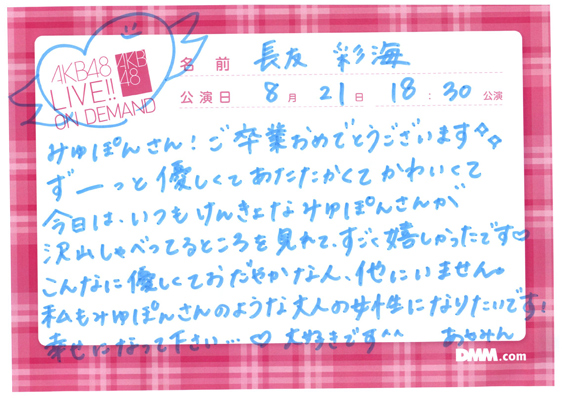 AKB48
LIVE!!
ON DEMAND
AKB
48
名前 長友 彩海
公演日 8月 21日 18:30 公演
みゆぽんさん！ご卒業おめでとうございます✧✧
ずーっと優しくてあたたかくてかわいくて
今日は、いつもけんきょなみゆぽんさんが
沢山しゃべってるところを見れて、すごく嬉しかったです♡
こんなに優しくておだやかな人、他にいません。
私もみゆぽんさんのような大人の女性になりたいです！
幸せになって下さい…♡ 大好きです^^ あやみん
DMM.com